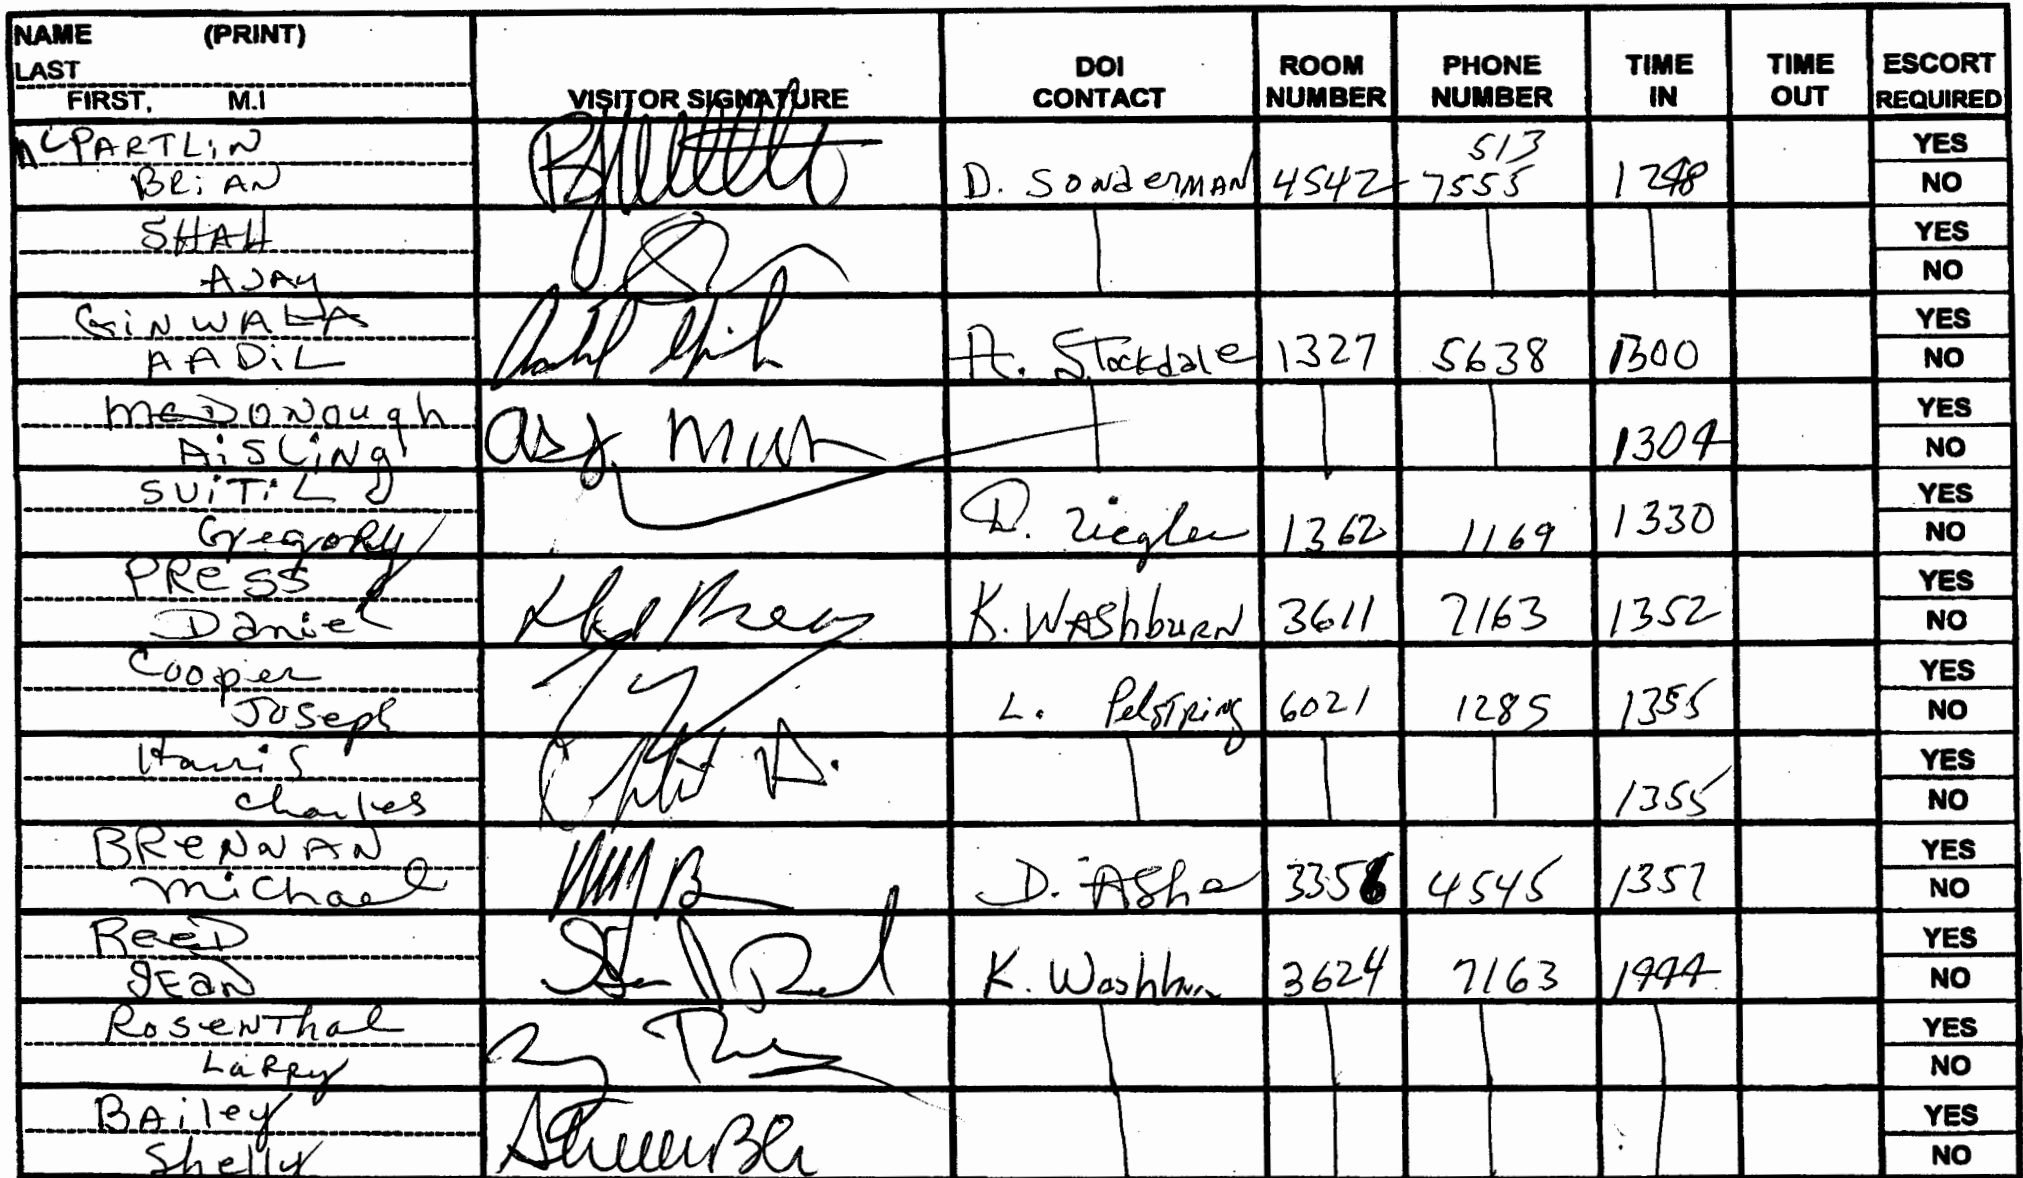 NAME (PRINT)
LAST
FIRST, M.I
VISITOR SIGNATURE
DOI CONTACT
ROOM NUMBER
PHONE NUMBER
TIME IN
TIME OUT
ESCORT REQUIRED
McPARTLIN
BRiAN
D. SONDERMAN 4542 513 7555 1248
YES
NO
SHAH
AJAY
YES
NO
GiNWALA
AADiL
A. Stockdale 1327 5638 1300
YES
NO
McDONOugh
AiSLiNg
1304
YES
NO
SUiTiL
GregoRy
D. Ziegler 1362 1169 1330
YES
NO
PRESS
Daniel
K. WAShbuRN 3611 7163 1352
YES
NO
Cooper
Joseph
L. PelsTRing 6021 1285 1355
YES
NO
Harris
Charles
1355
YES
NO
BRENNAN
Michael
D. Ashe 3356 4545 1357
YES
NO
ReeD
K. Washburn 3624 7163
YES
NO
RosenThal
LaRRy
YES
NO
BAiley
Shelly
YES
NO